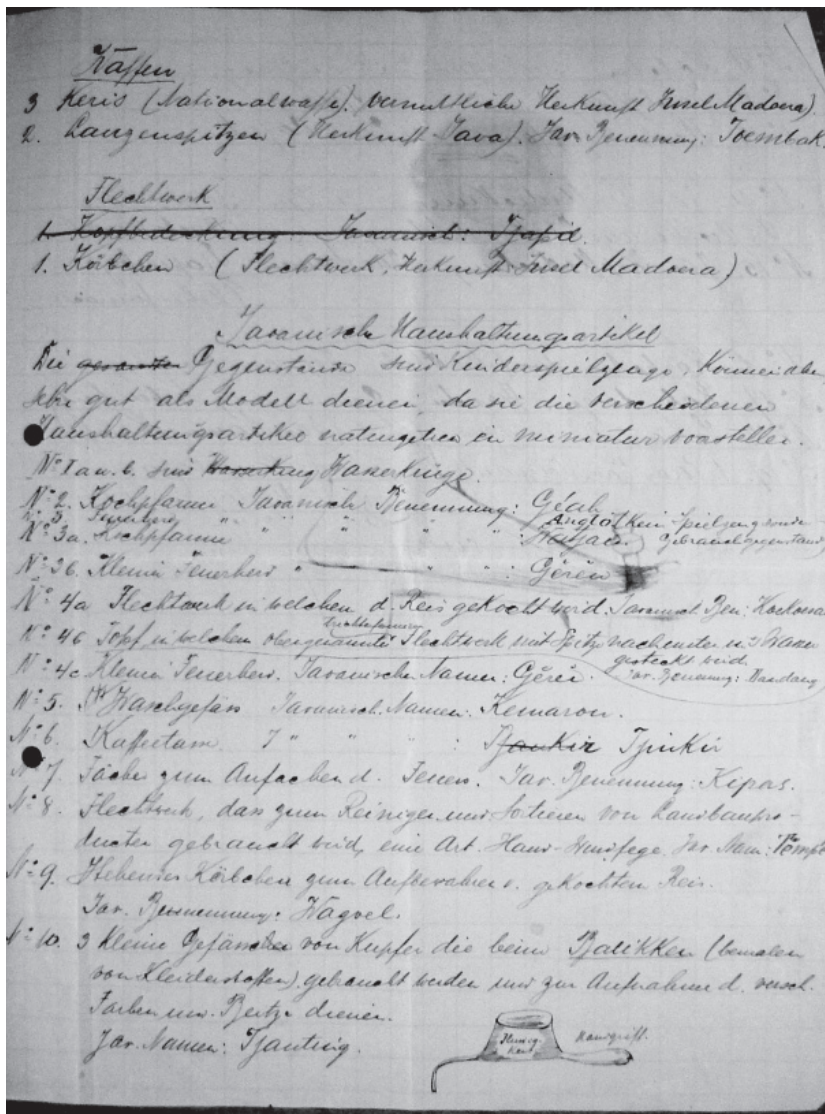 Waffen
3 Keris (Nationalwaffe). vermutliche Herkunft Insel Madoera).
2. Lanzenspitzen (Herkunft Java). Jav. Benennung: Toembak.
Flechtwerk
1. Kopfbedeckung. Javanisch: Tjapil.
1. Körbchen (Flechtwerk, Herkunft: Insel Madoera)
Javanische Haushaltungsartikel
Die Gegenstände sind Kinderspielzeuge, Können aber
sehr gut als Modell dienen, da sie die verschiedenen
Haushaltungsartikel naturgetreu en miniatur vorstellen.
No 1 a u. b. sind Wasserkrüge.
No 2. Kochpfanne Javanisch Benennung: Géah
No 3 Feuerherd " " " Anglo (Kein Spielzeug sondern
No 3a. Kochpfanne " " " : Gebrauchsgegenstand
No 3b. Kleiner Feuerherd " " " : Gérén
No 4a Flechtwerk in welchen d. Reis gekocht wird. Javanisch Ben:
No 4b Topf, in welchen obengenannte Flechtwerk mit Spitze nach unten in d Wasser
gesteckt wird
Jav. Benennung: Dandang
No 4c Kleiner Feuerherd. Javanische Namen: Gérén.
No 5. Waschgefäss Javanisch. Namen: Kemaron.
No 6 " " " : Tjinkir
No 7. Fächer zum Anfachen d. Feuers. Jav. Benennung: Kipas.
No 8. Flechtwerk, dass zum Reinigen und Sortieren von Landbaupro-
ducten gebraucht wird, eine Art. Hand-Windfege. Jav. Nam:
No 9. Körbchen zum Aufbewahren v. gekochten Reis.
Jav. Benennung: Wagoel.
No 10. 3 Kleine Gefässchen von Kupfer die beim Batikken (bemalen
von Kleiderstoffen) gebraucht werden und zur Aufnahme d. versch.
Farben und Beitze dienen.
Jav. Namen: Tjanting.
Handgriff.